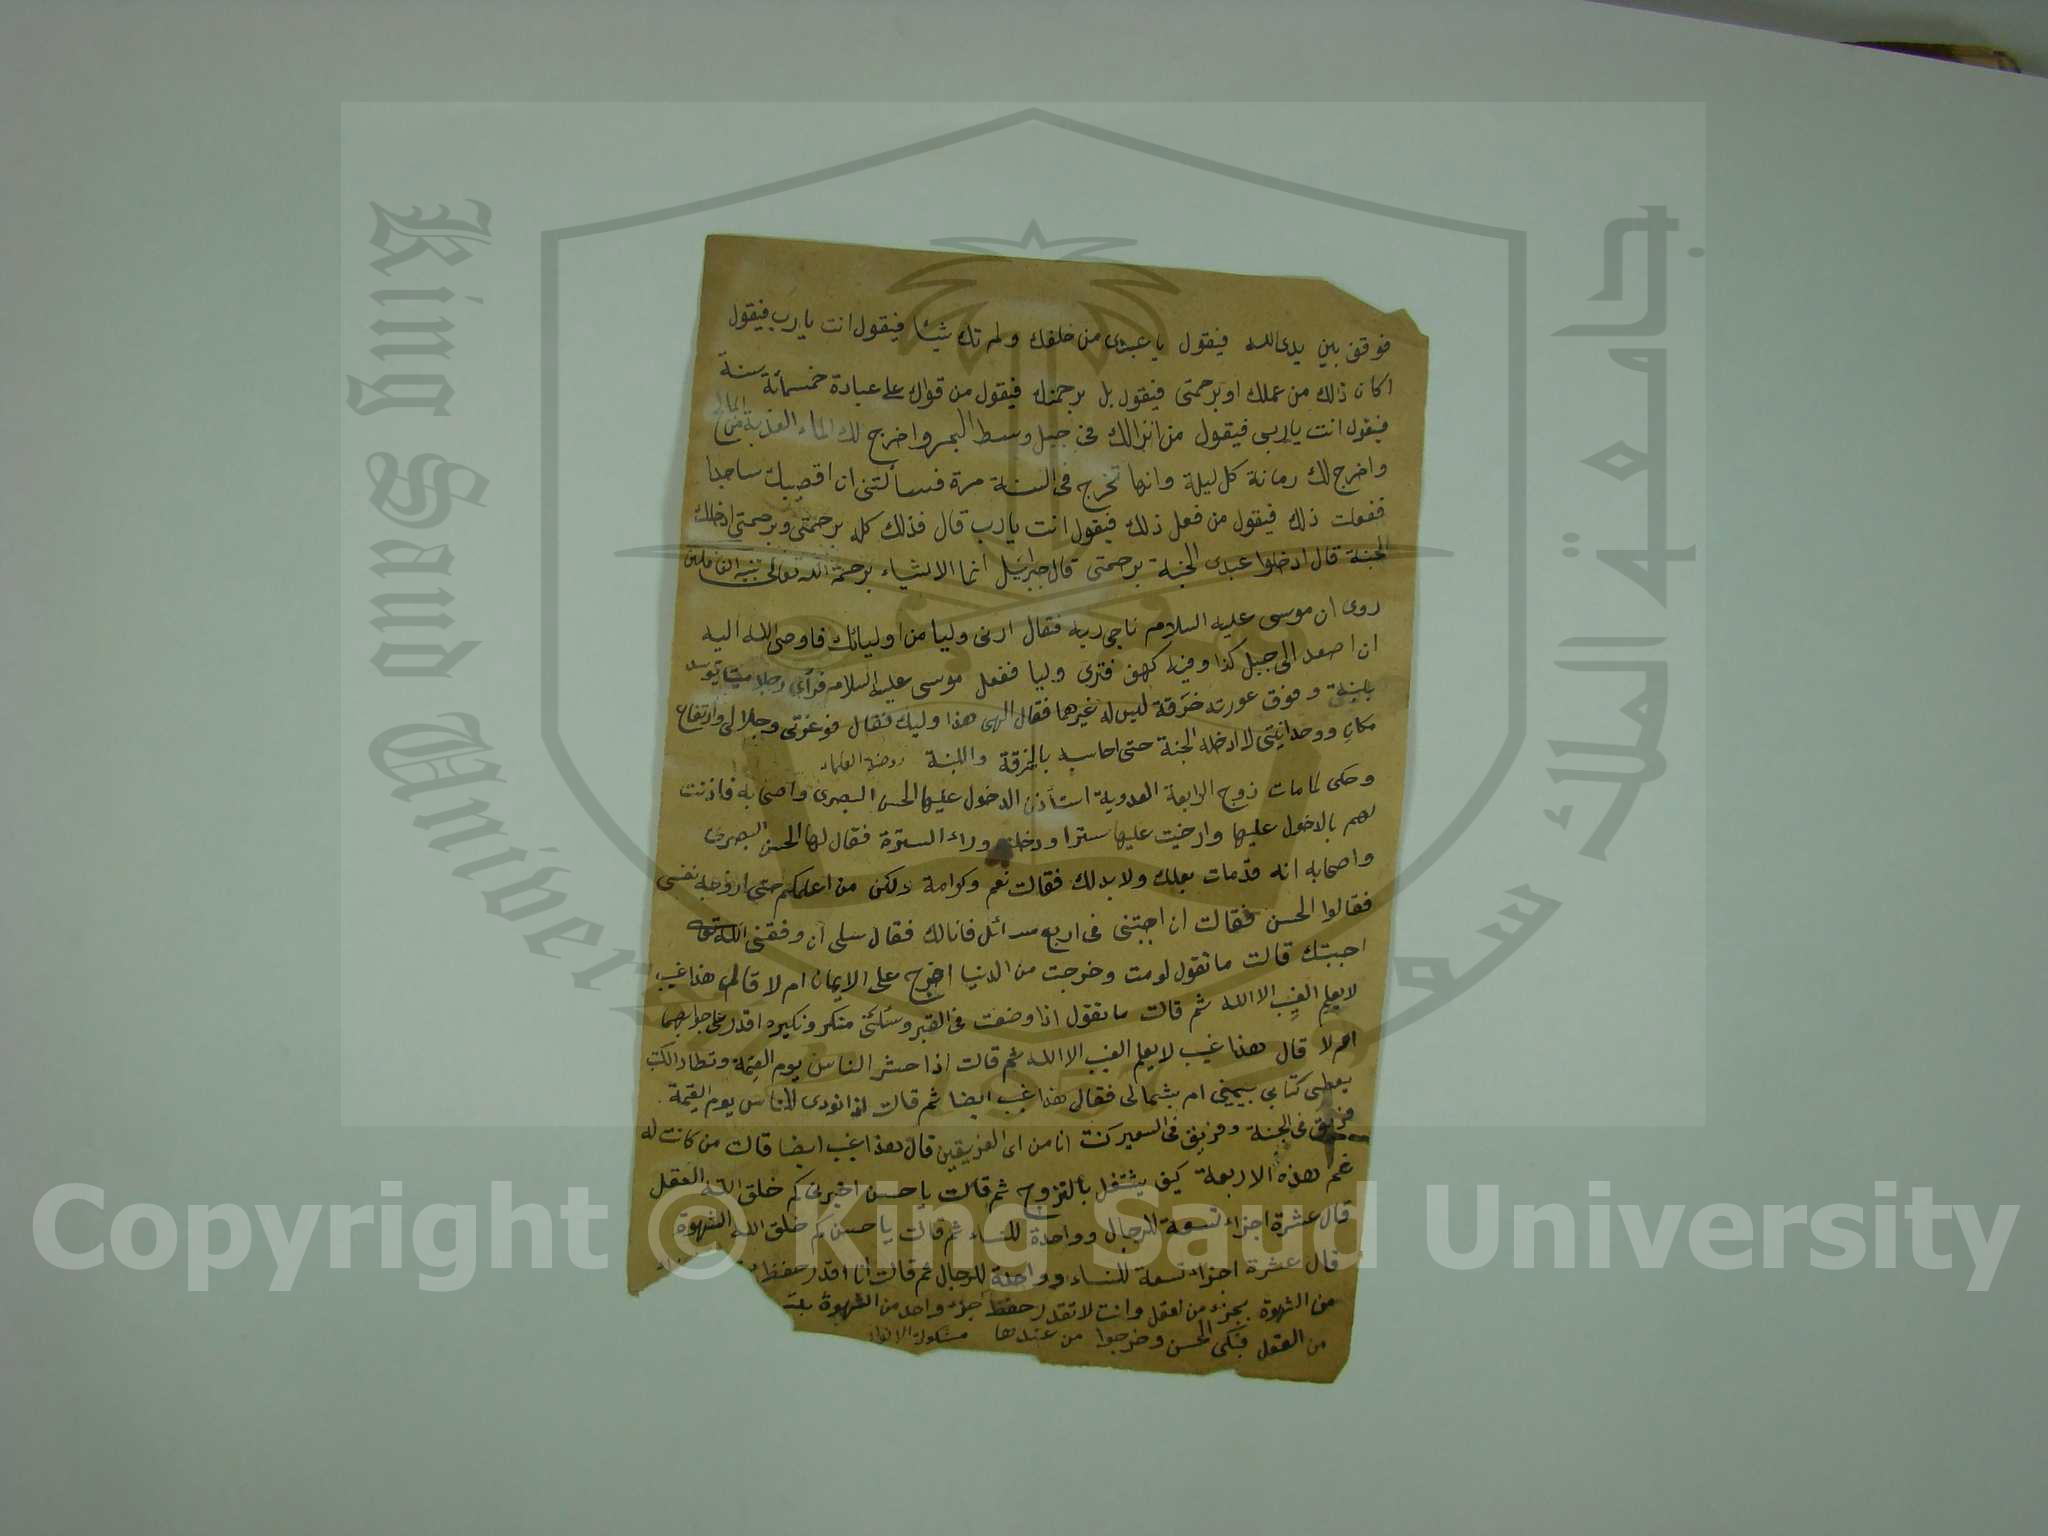 فوقف بين يدى الله فيقول يا عبدى من خلقك ولم تك شيئا فيقول انت يا رب فيقول
اكان ذلك من عملك او برحمتى فيقول بل برحمتك فيقول من قواك على عبادة خمسمائة سنة
فيقول انت يا ربى فيقول من انزلك فى جبل وسط البحر واخرج لك الماء العذبة من المالح
واخرج لك رمانة كل ليلة وانها تخرج فى السنة مرة فسألتنى ان اقبضك ساجدا
ففعلت ذلك فيقول من فعل ذلك فيقول انت يا رب قال فذلك كله برحمتى وبرحمتى ادخلك
الجنة قال ادخلوا عبدى الجنة برحمتى قال جبرائيل انما الاشياء برحمة الله تعالى تنبيه الغافلين
روى ان موسى عليه السلام ناجى ربه فقال ارنى وليا من اوليائك فاوحى الله اليه
ان اصعد الى جبل كذا وفيه كهف فترى وليا ففعل موسى عليه السلام فرأى رجلا ميتا توسد
بلبنة وفوق عورته خرقة ليس له غيرها فقال الهى هذا وليك فقال فوعزتى وجلالى وارتفاع
مكانى ووحدانيتى لا ادخله الجنة حتى احاسبه بالخرقة واللبنة روضة العلماء
وحكى لما مات زوج الرابعة العدوية استأذن الدخول عليها الحسن البصرى واصحابه فاذنت
لهم بالدخول عليها وارخيت عليها سترا ودخلت وراء السترة فقال لها الحسن البصرى
واصحابه انه قد مات بعلك ولا بد لك فقالت نعم وكرامة ولكن من اعلمكم حتى ازوجه نفسى
فقالوا الحسن فقالت ان اجبتنى فى اربع مسائل فانا لك فقال سلى ان وفقنى الله تعالى
اجبتك قالت ما تقول لو مت وخرجت من الدنيا اخرج على الايمان ام لا قال هذا غيب
لا يعلم الغيب الا الله ثم قالت ما تقول اذا وضعت فى القبر وسئلنى منكر ونكير اقدر على جوابهما
ام لا قال هذا غيب لا يعلم الغيب الا الله ثم قالت اذا حشر الناس يوم القيمة وتطاير الكتب
يعطى كتابى بيمينى ام بشمالى فقال هذا غيب ايضا ثم قالت اذا نودى للناس يوم القيمة
فريق فى الجنة وفريق فى السعير كنت انا من اى الفريقين قال هذا غيب ايضا قالت من كانت له
غم هذه الاربعة كيف يشتغل بالتزوج ثم قالت يا حسن اخبرنى كم خلق الله العقل
قال عشرة اجزاء تسعة للرجال وواحدة للنساء ثم قالت يا حسن كم خلق الله الشهوة
قال عشرة اجزاء تسعة للنساء وواحدة للرجال ثم قالت انا اقدر حفظ
من الشهوة بجزء من العقل وانت لا تقدر حفظ جزء واحد من الشهوة
من العقل فبكى الحسن وخرجوا من عندها مشكوة الانوار
King Saud University
جامعة الملك سعود
1957
Copyright © King Saud University